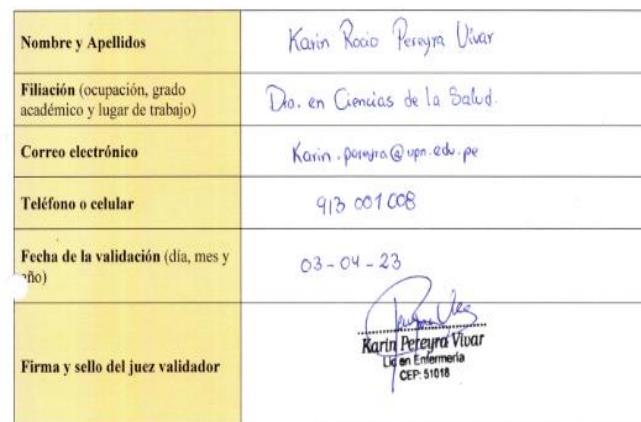 Nombre y Apellidos
Karin Rocio Pereyra Vivar
Filiación (ocupación, grado
académico y lugar de trabajo)
Dra. en Ciencias de la Salud.
Correo electrónico
Karin.pereyra@upn.edu.pe
Teléfono o celular
913 001 008
Fecha de la validación (día, mes y
año)
03-04-23
Firma y sello del juez validador
Karin Pereyra Vivar
Lic en Enfermería
CEP: 51018